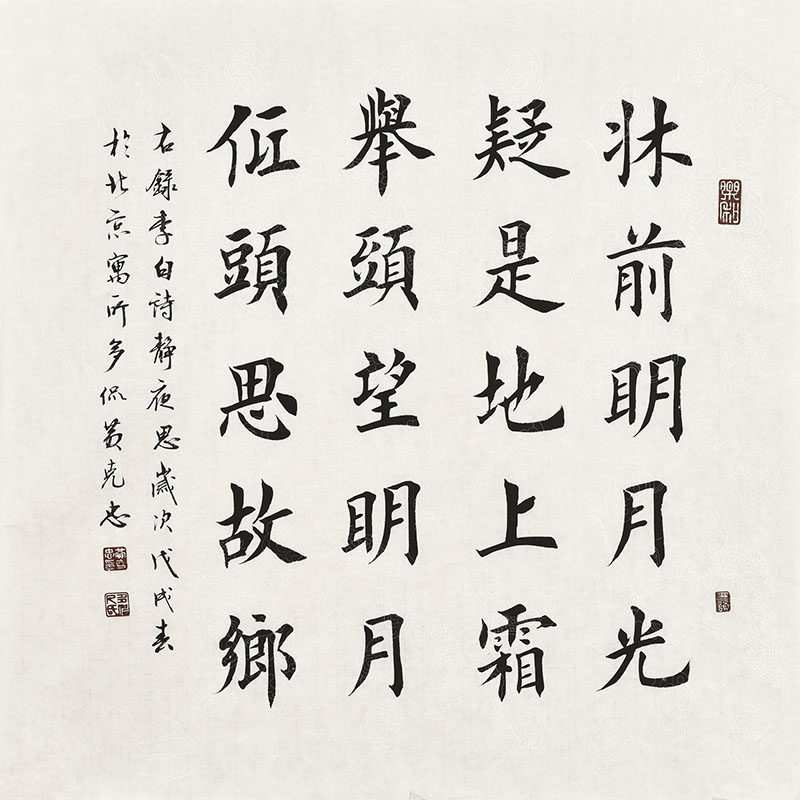 牀前明月光
疑是地上霜
舉頭望明月
低頭思故鄉
右錄李白詩靜夜思歲次戊戌春
於北京寓所多侃黃克忠